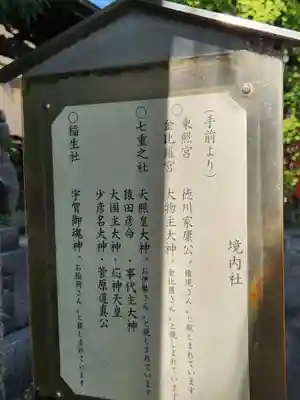 境内社
(手前より)
○東照宮 徳川家康公。権現さんと親しまれています
金比羅宮 大物主大神。金比羅さんと親しまれています
○七重之社 天照皇大神。お伊勢さんと親しまれています
猿田彦命・事代主大神
大国主大神・応神天皇
少彦名大神・菅原道真公
○稲生社 宇賀御魂神。お稲荷さんと親しまれています